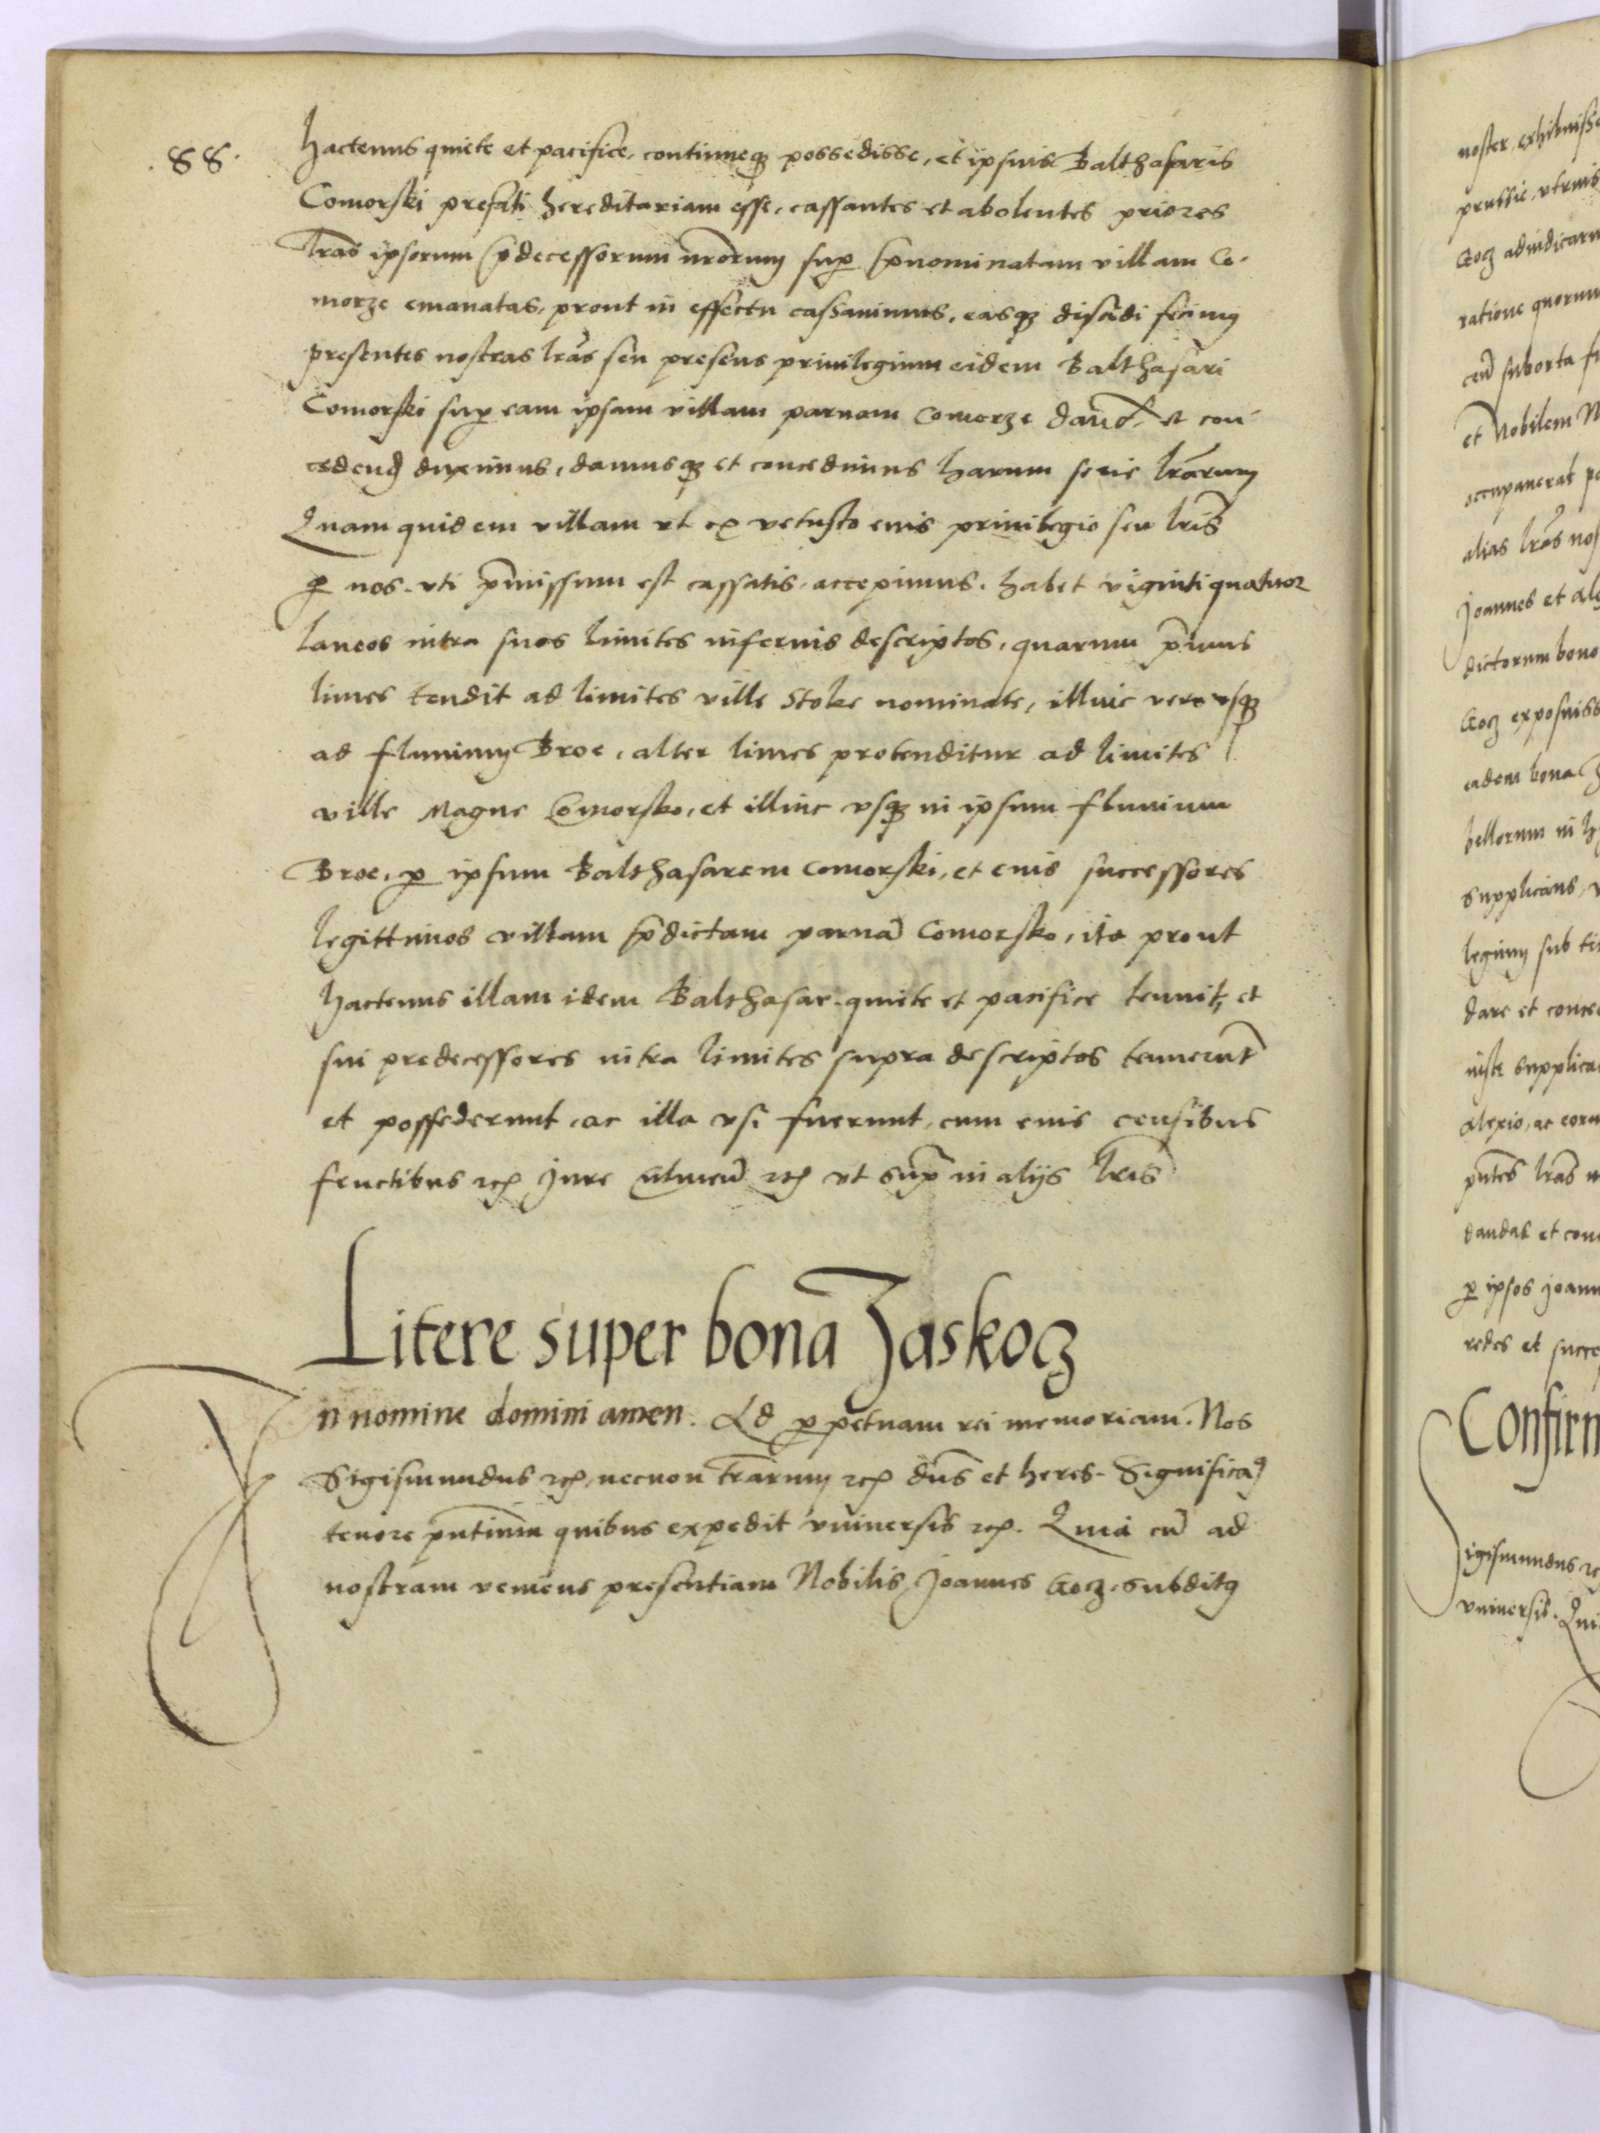 .88.
hactenus quiete et pacifice, continueq3 possedisse, et ipsius Balthasaris
Comorski prefati hereditariam esse, cassantes et abolentes priores
lras ipsorum p̄decessorum nrorum sup p̄nominatam villam Co-
morze emanatas, prout in effectu cassavimus, easq3 discidi fecimus
presentes nostras lras seu presens privilegium eidem Balthasari
Comorski sup eam ipsam villam parvam Comorze dand et con
cedend duximus, damusq3 et concedimus harum serie lrarum
Quam quidem villam ut ex vetusto eius privilegio seu lris
p nos uti p̄missum est cassatis accepimus. habet vigintiquatuor
laneos intra suos limites inferius descriptos, quarum p̄imus
limes tendit ad limites ville Stoke nominate, illinc vero usq3
ad fluvium Broe, alter limes protenditur ad limites
ville Magne Comorsko, et illinc usq3 in ipsum fluvium
Broe, p ipsum Balthasarem Comorski, et eius successores
legittimos villam p̄dictam parvā Comorsko, ita prout
hactenus illam idem Balthasar quiete et pacifice tenuit, et
sui predecessores intra limites supra descriptos tenuerūt
et possederunt, ac illa usi fuerunt, cum eius censibus
fructibus etc Jure Culmeñ etc ut sup̄ in alijs lris
Litere super bona Zaskocz
In nomine domini amen. Ad ppetuam rei memoriam. Nos
Sigismundus etc necnon trarum etc dns et heres. Significam9
tenore pntium quibus expedit universis etc. Quia cū ad
nostram veniens presentiam Nobilis Joannes Gocz subditus
noster, exhibuiss
prussie, utrius
Gocz adiudicarū
ratione quorum
ceñ suborta fu
et Nobilem N
occupaverat po
alias lras nos
Joannes et Ale
dictorum bono
Gocz exposuiss
eadem bona Z
bellorum in h
supplicans, v
legium sub ti
dare et conce
iuste supplica
Alexio, ac eoru
pntes lras n
dandas et con
p ipsos Joann
redes et succe
Confirm
Sigismundus etc
universis. Qui